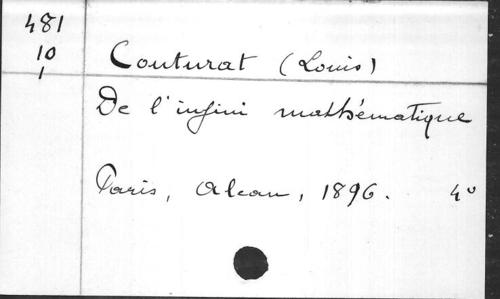 481
10
1
Couturat (Louis)
De l'infini mathématique
Paris, Alcan, 1896. 4º